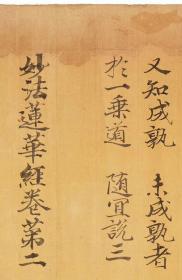 又知成孰　未成孰者
於一乗道　随宜說三
妙法蓮華經卷第二